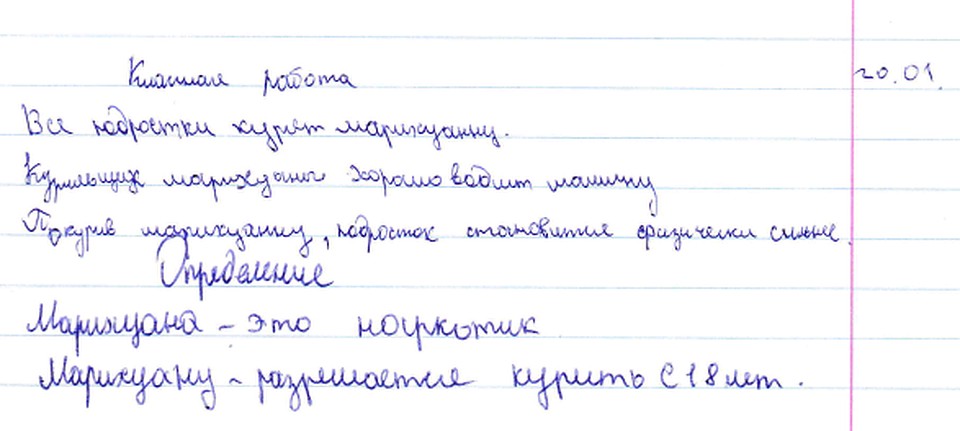 Классная работа 20.01.
Все подростки курят марихуанну.
Курильщик марихуаны хорошо водит машину
Покурив марихуанну, подросток становится физически сильнее.
Определение
Марихуана – это наркотик
Марихуану – разрешается курить с 18 лет.